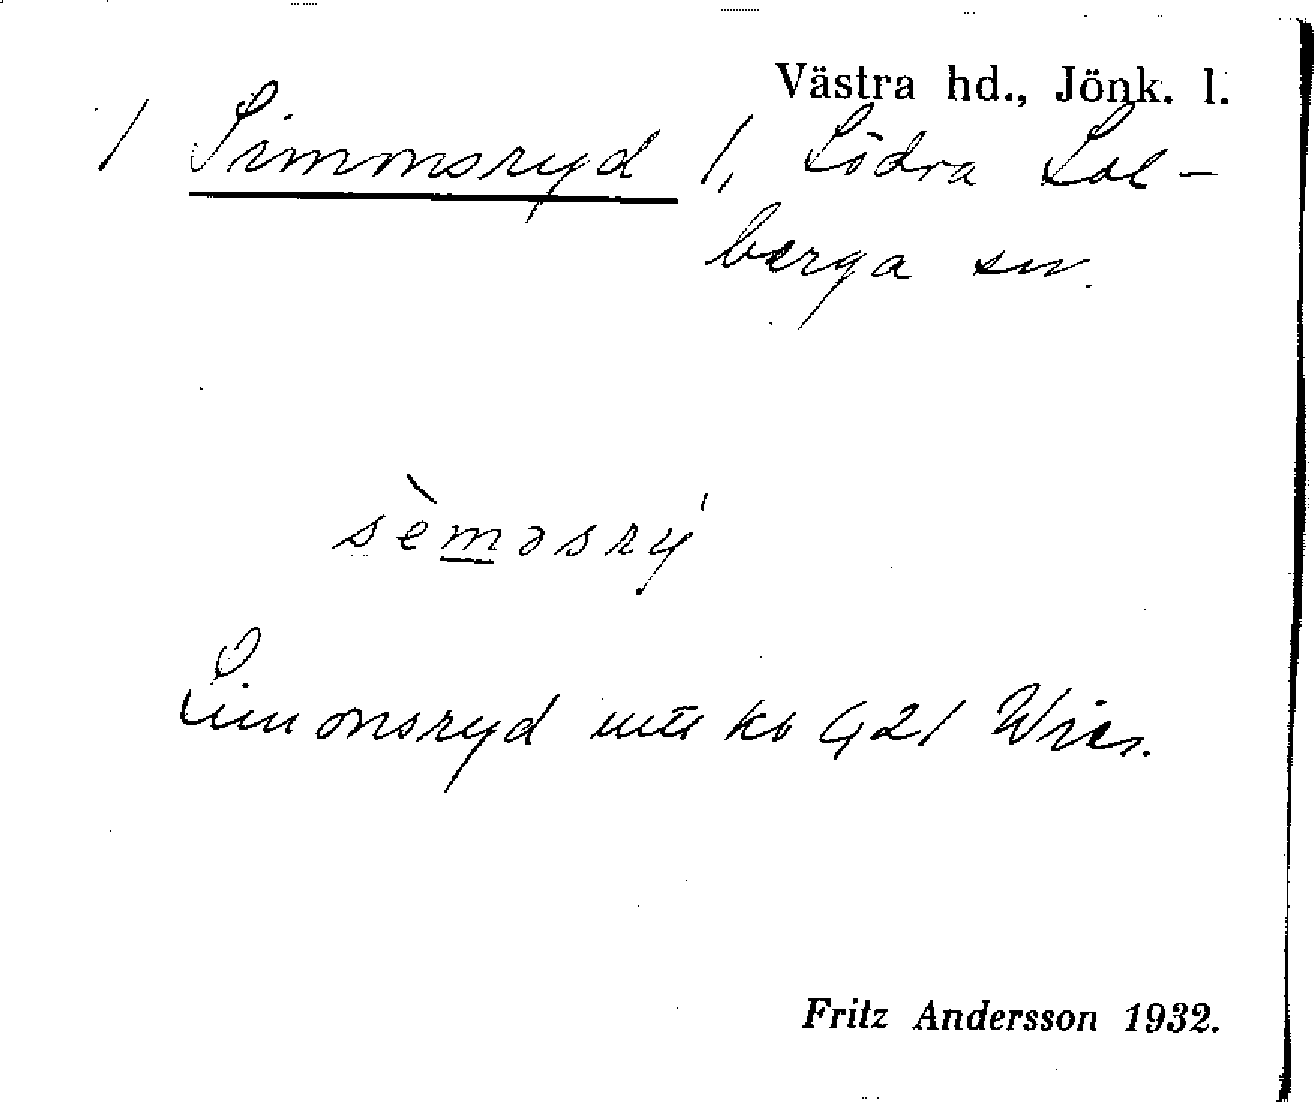 Västra hd., Jönk. l.
/ Simonsryd /, Södra Sol-
berga sn.
sèməsrý
Simonsryd mtl kb 921 Wies.
Fritz Andersson 1932.